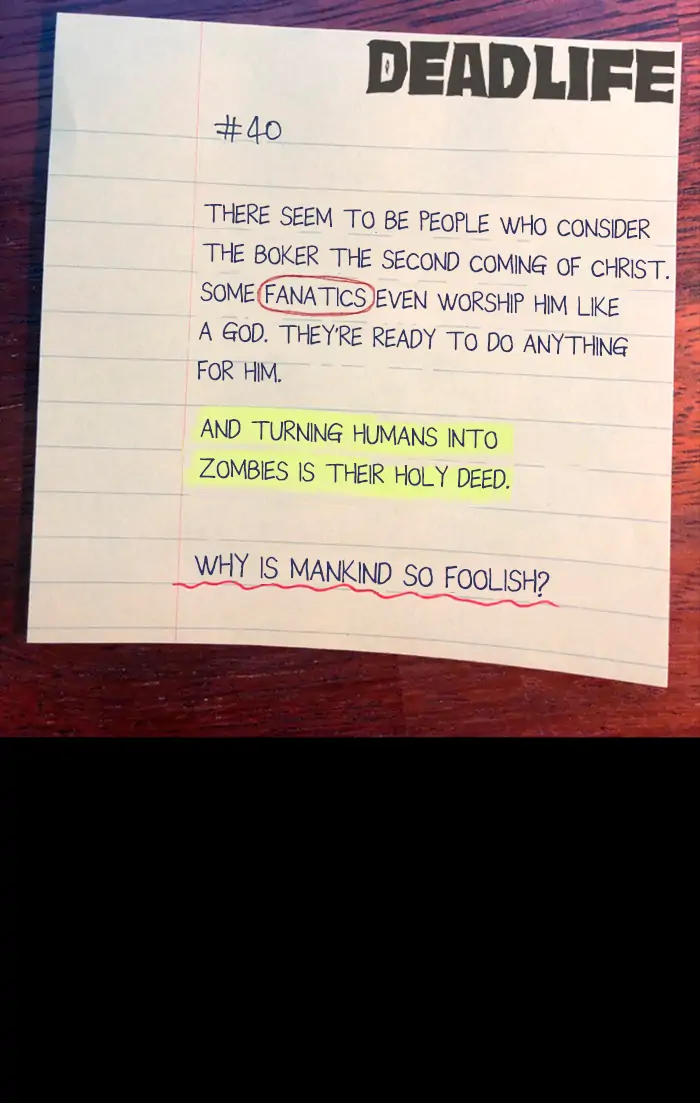 DEADLIFE
#40
THERE SEEM TO BE PEOPLE WHO CONSIDER
THE BOKER THE SECOND COMING OF CHRIST.
SOME FANATICS EVEN WORSHIP HIM LIKE
A GOD. THEY'RE READY TO DO ANYTHING
FOR HIM.
AND TURNING HUMANS INTO
ZOMBIES IS THEIR HOLY DEED.
WHY IS MANKIND SO FOOLISH?